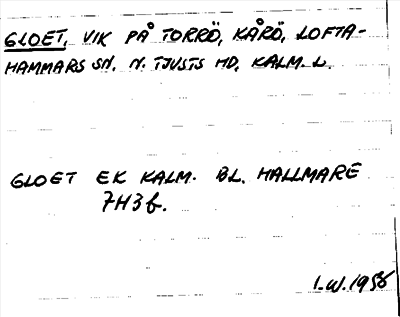 GLOET, VIK PÅ TORRÖ, KÅRÖ, LOFTA-
HAMMARS SN. N. TJUSTS HD. KALM. L.
GLOET EK KALM. BL. HALLMARE
7H3f.
I.W. 1956